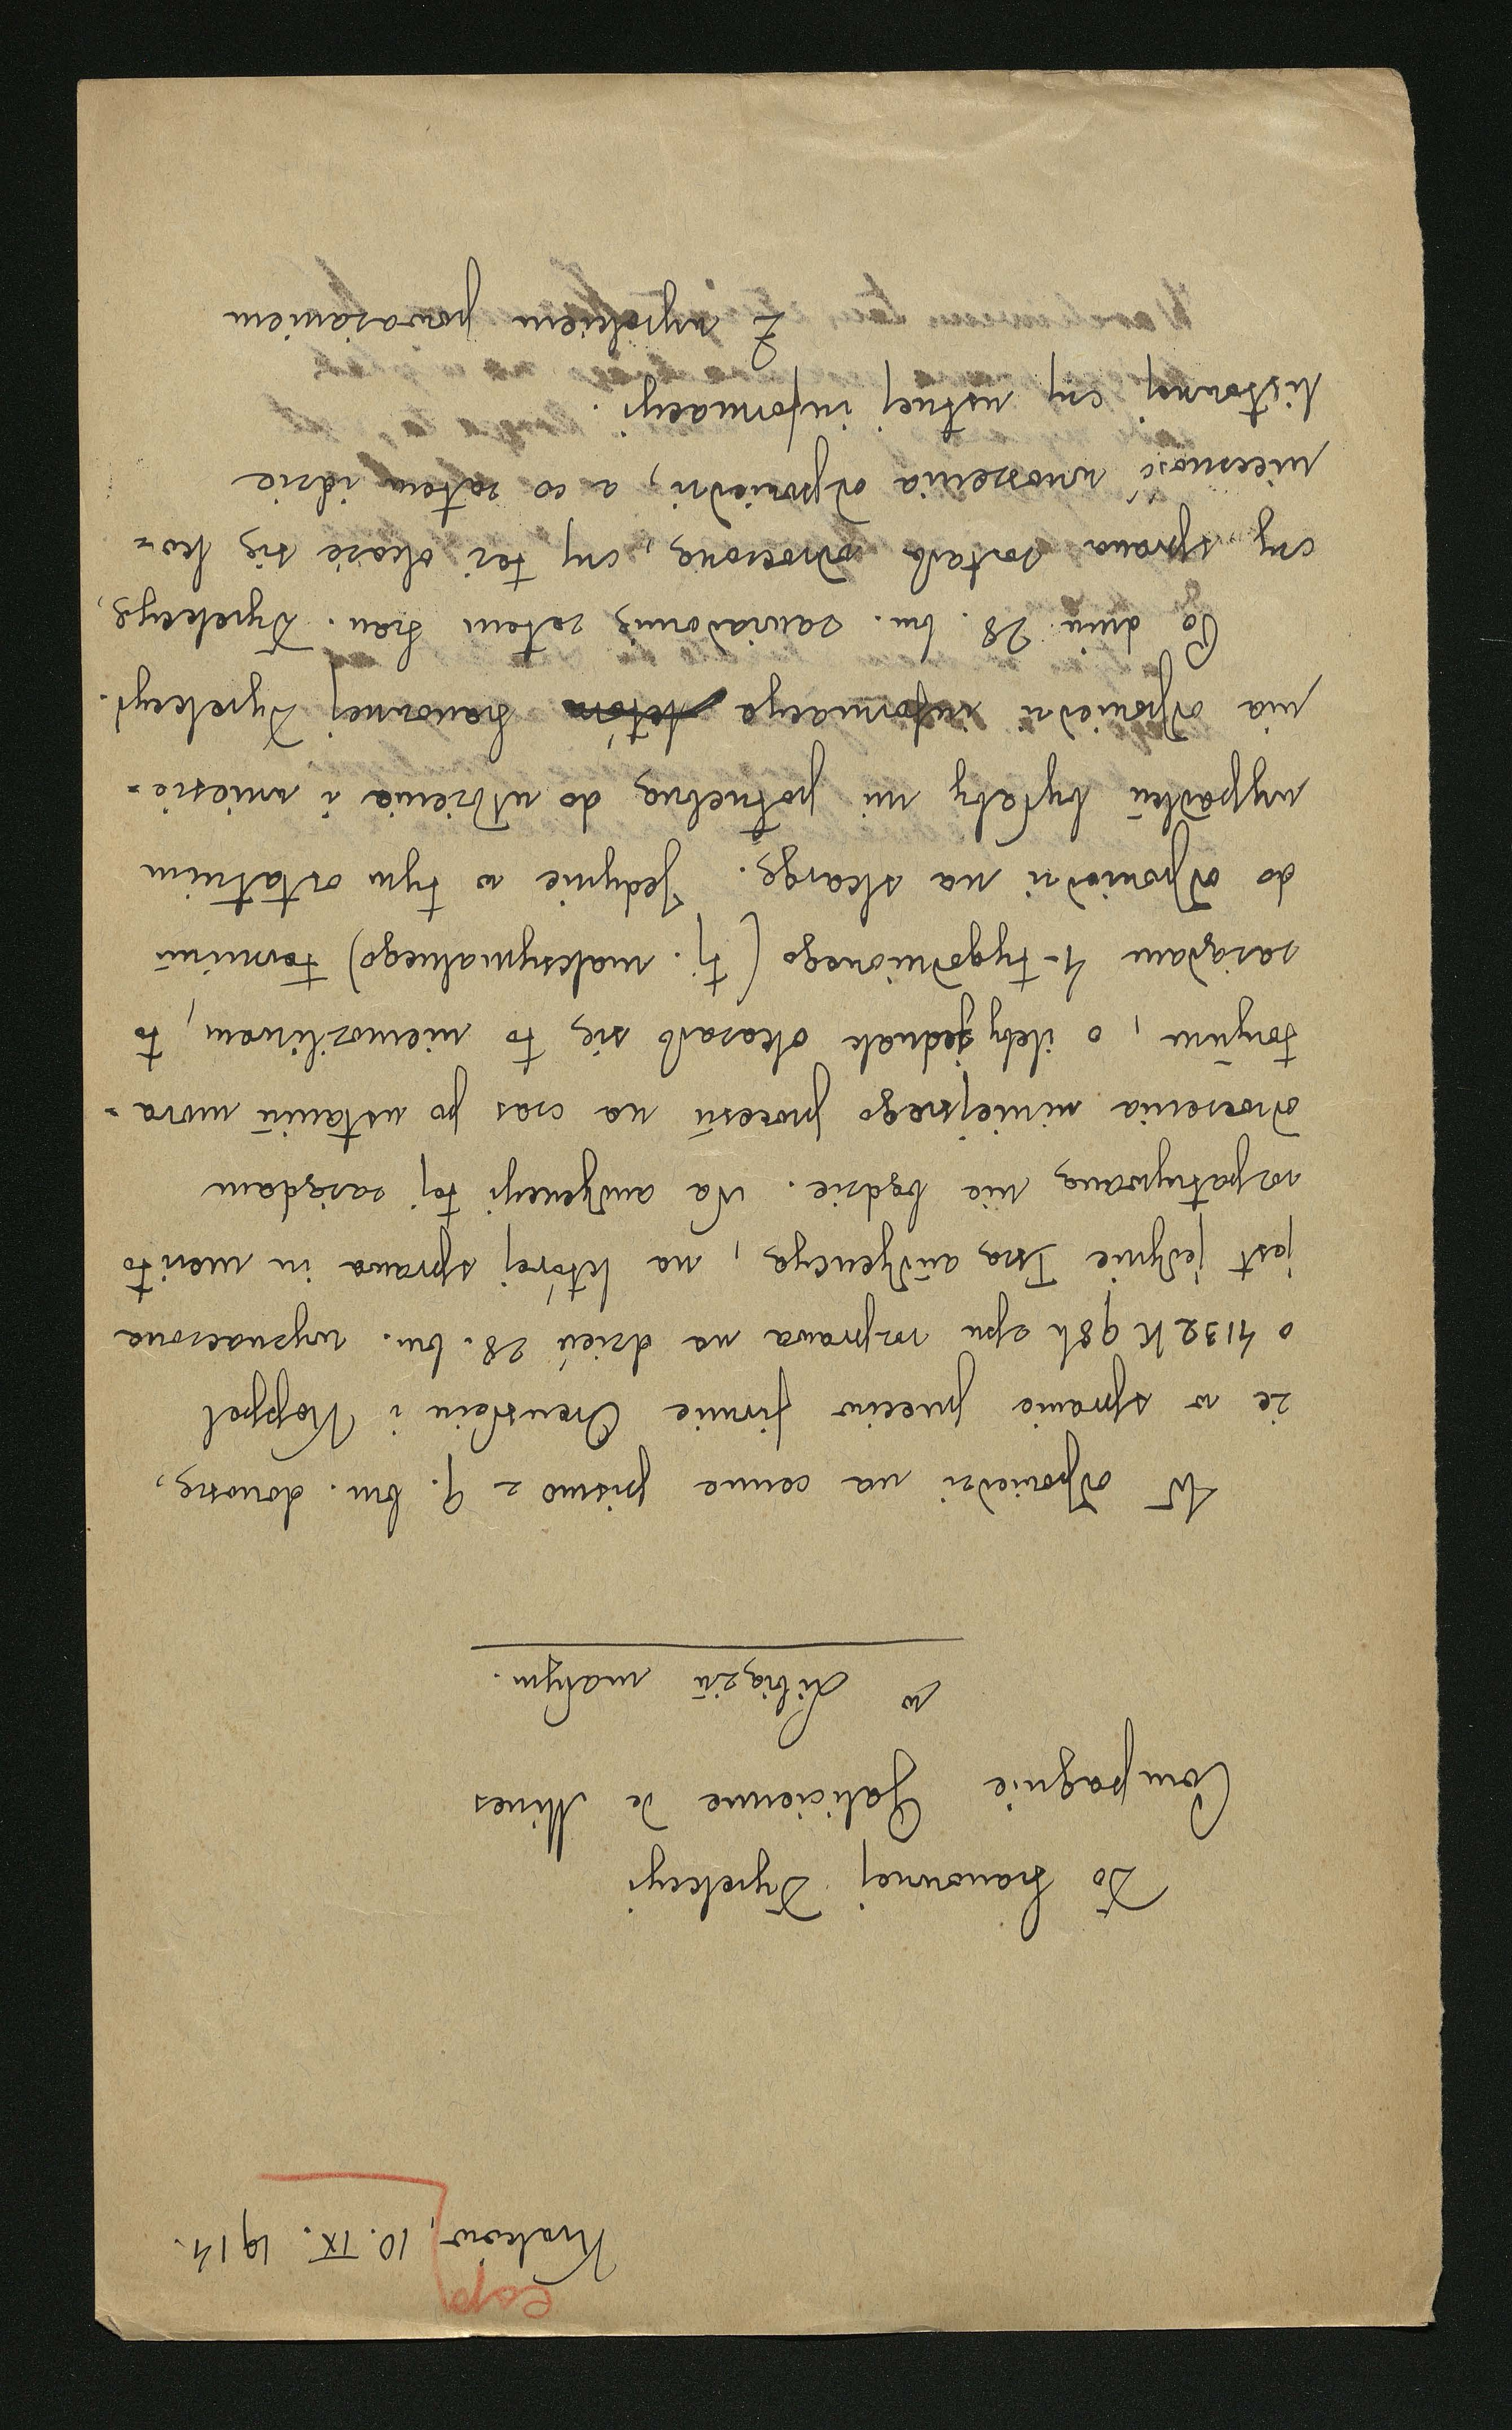 cop
Kraków, 10. IX. 1914.
Do Szanownej Dyrekcyi
Compagnie Galicienne de Mines
w Libiążu małym.
W odpowiedzi na cenne pismo z 9. bm. donoszę,
że w sprawie przeciw firmie Orenstein i Koppel
o 4132 K 98 h zpn rozprawa na dzień 28. bm. wyznaczona
jest jedynie Iszą audyencyą, na której sprawa in merito
rozpatrywaną nie będzie. Na audyencyi tej zażądam
odroczenia niniejszego procesu na czas po ustaniu mora-
toryum, o ileby jednak okazało się to niemożliwem, to
zażądam 4-tygodniowego (tj. maksymalnego) terminu
do odpowiedzi na skargę. Jedynie w tym ostatnim
wypadku byłaby mi potrzebną do ułożenia i wniesie-
nia odpowiedzi informacya która Szanownej Dyrekcyi.
Po dniu 28. bm. zawiadomię zatem Szan. Dyrekcyę,
czy sprawa została odroczoną, czy też okaże się ko-
nieczność wnoszenia odpowiedzi, a co zatem idzie
listownej czy ustnej informacyi.
Z wysokiem poważaniem